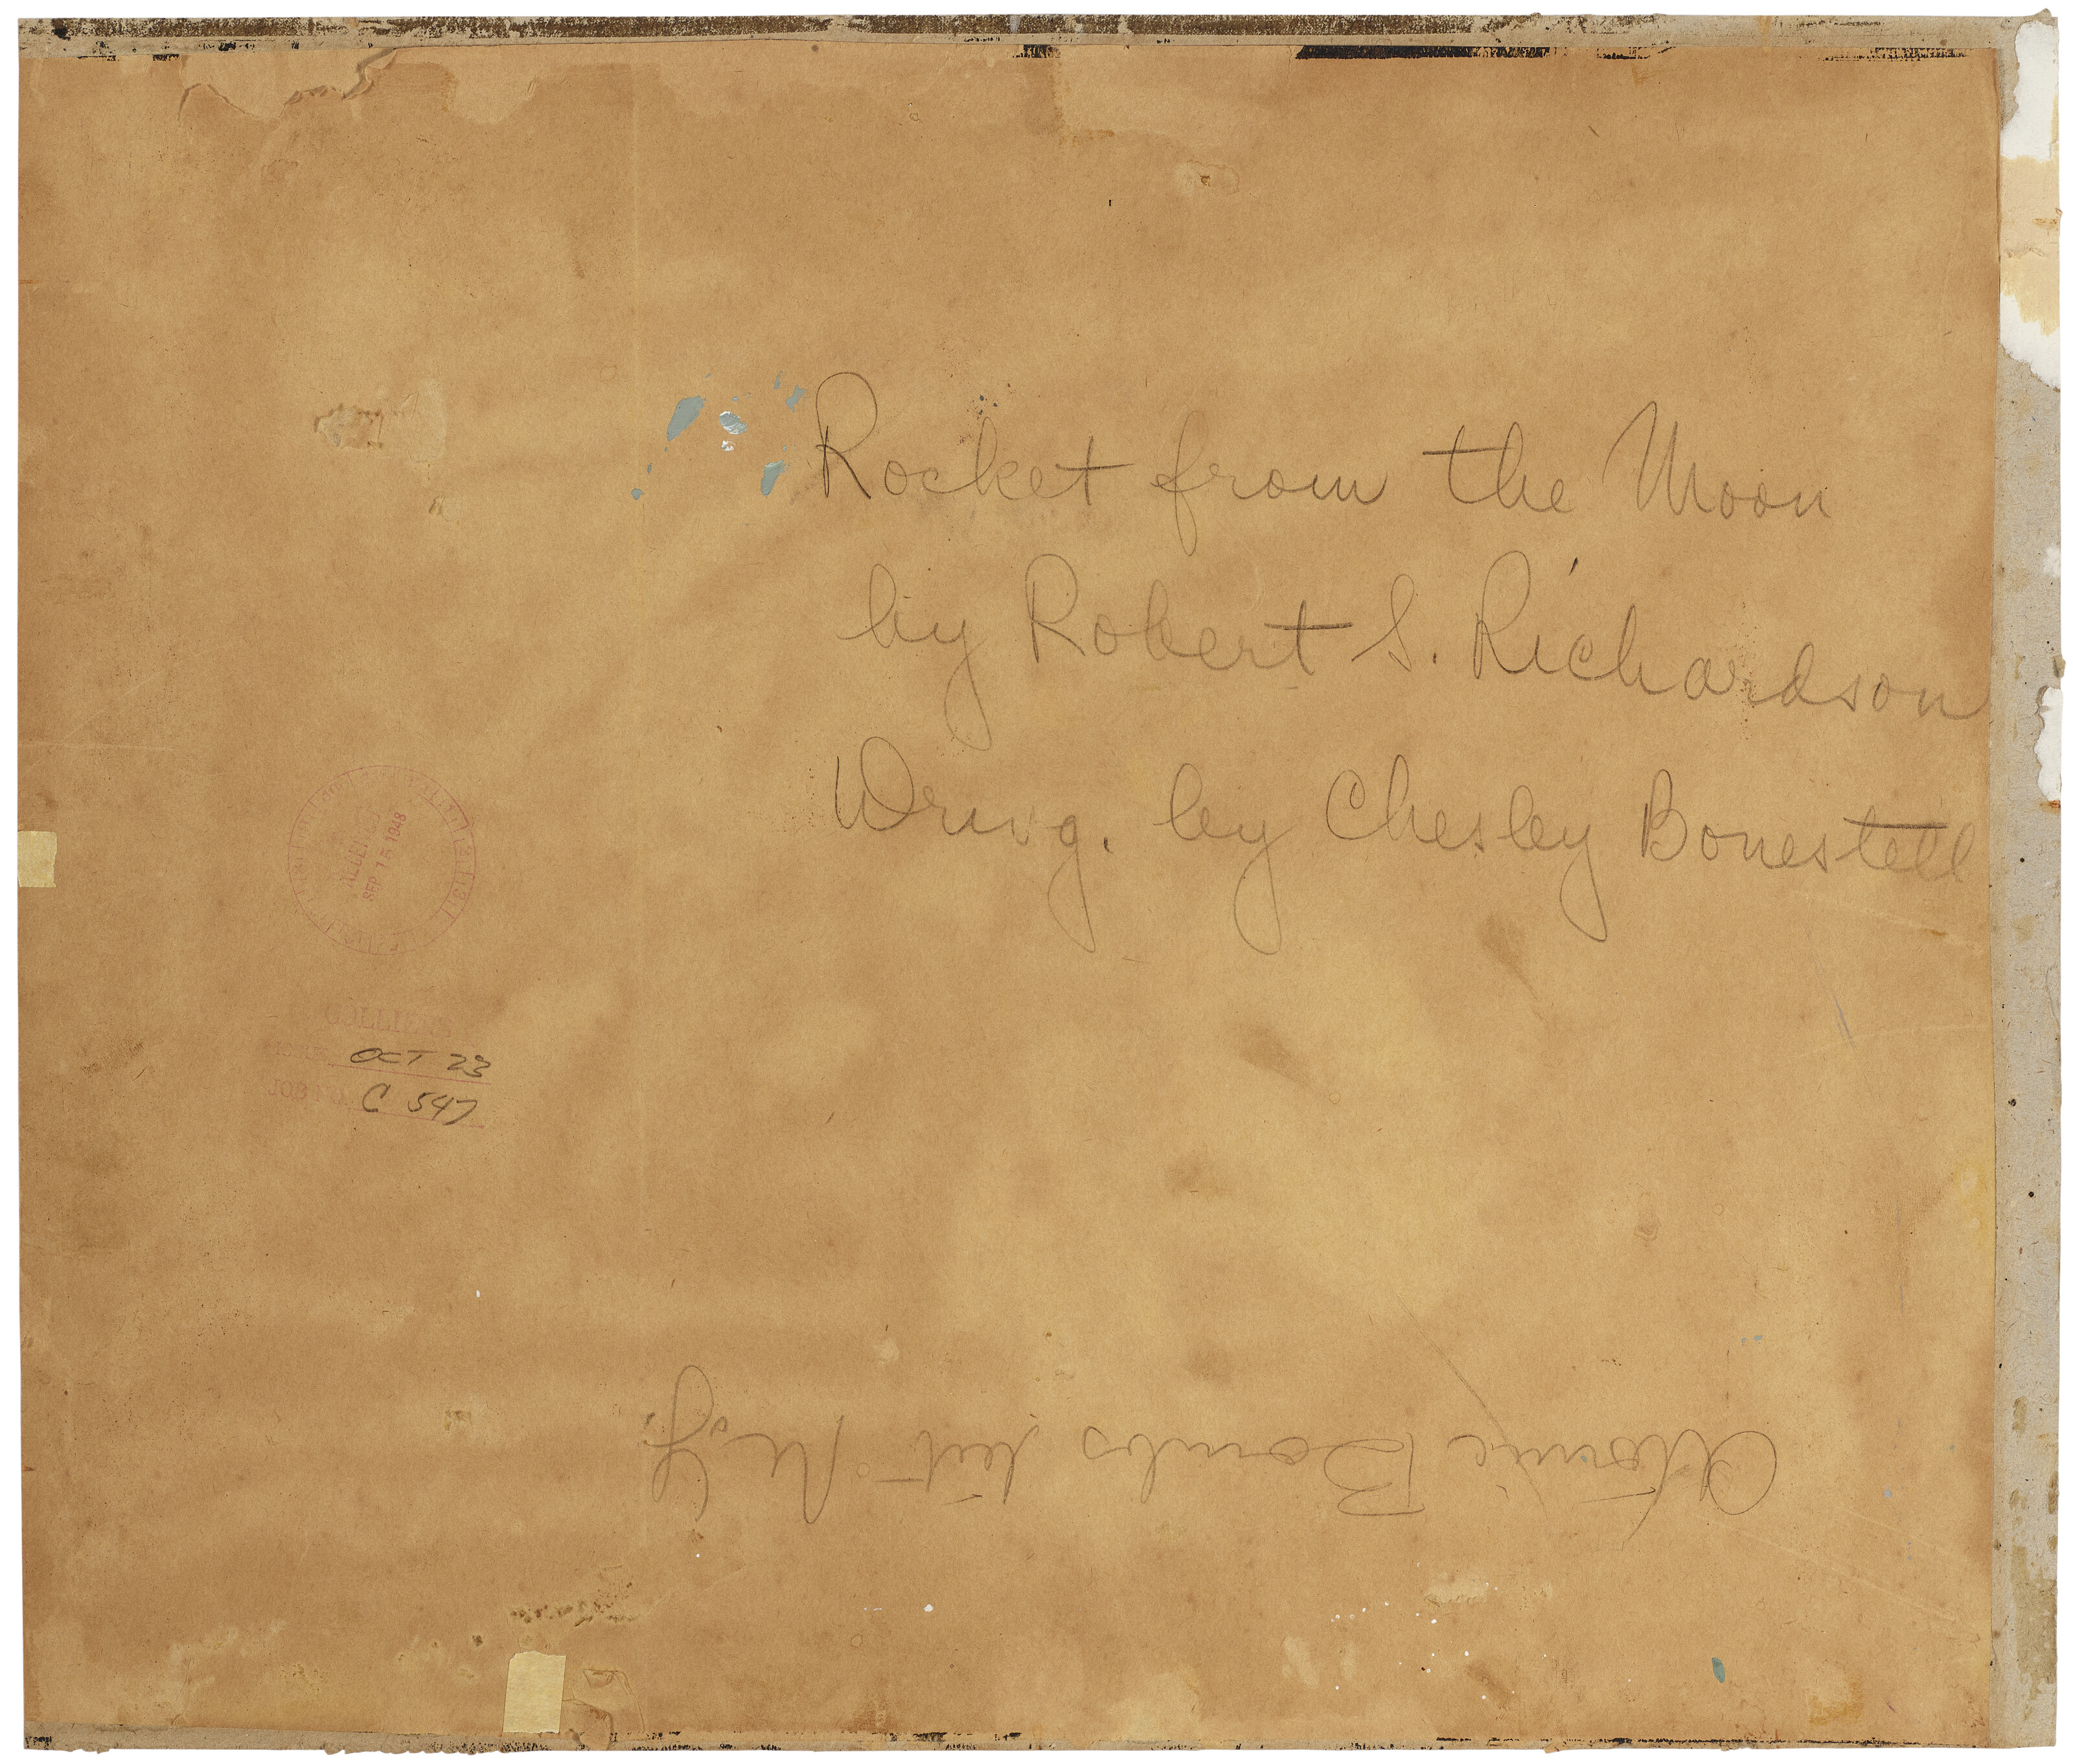 Rocket from the Moon
by Robert S. Richardson
Drwg. by Chesley Bonestell
SEP 15 1948
COLLIER'S
OCT 23
JOB NO. C 547
Atomic Bombs hit N.Y.